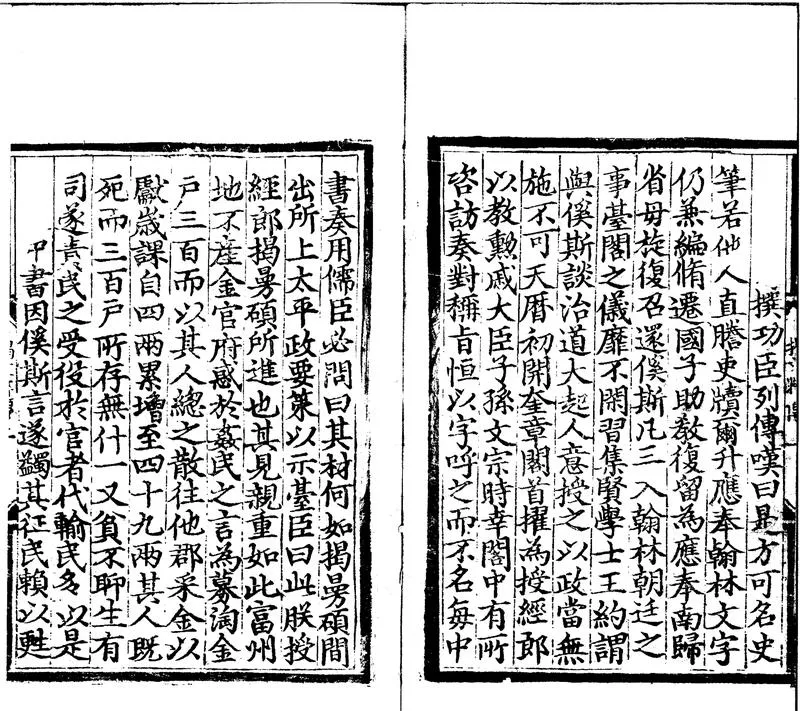 撰功臣列傳嘆曰是方可名史
筆若他人直謄吏牘爾升應奉翰林文字
仍兼編脩遷國子助教復留為應奉南歸
省母旋復召還傒斯凡三入翰林朝廷之
事臺閣之儀靡不閑習集賢學士王約謂
與傒斯談治道大起人意授之以政當無
施不可天曆初開奎章閣首擢為授經郎
以教勳戚大臣子孫文宗時幸閣中有所
咨訪奏對稱旨恒以字呼之而不名每中
書奏用儒臣必問曰其材何如揭曼碩間
出所上太平政要策以示臺臣曰此朕授
經郎揭曼碩所進也其見親重如此富州
地不產金官府惑於姦民之言為募淘金
戶三百而以其人總之散往他郡采金以
獻歲課自四兩累增至四十九兩其人既
死而三百戶所存無什一又貧不聊生有
司遂責民之受役於官者代輸民多以是
中書因傒斯言遂蠲其征民賴以甦